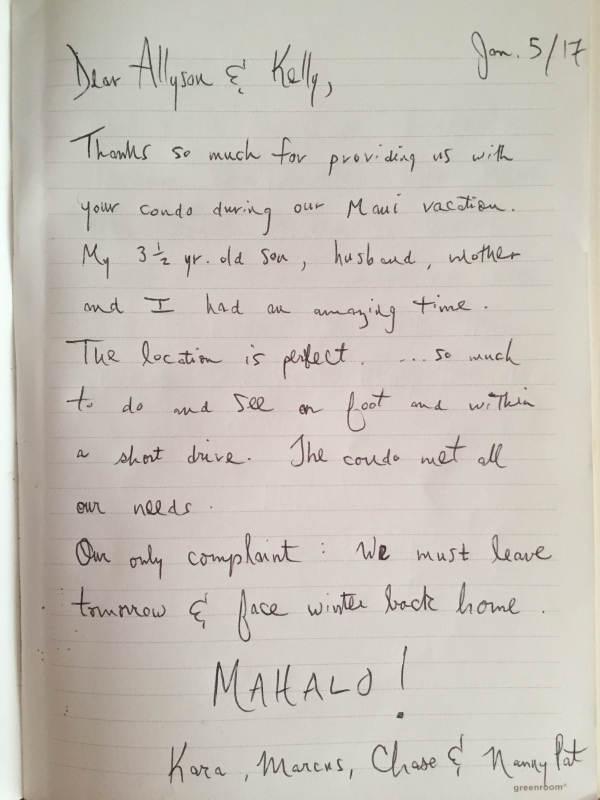 Jan. 5/17
Dear Allyson & Kelly,
Thanks so much for providing us with
your condo during our Maui vacation.
My 3 ½ yr. old son, husband, mother
and I had an amazing time.
The location is perfect. ...so much
to do and see on foot and within
a short drive. The condo met all
our needs.
Our only complaint: We must leave
tomorrow & face winter back home.
MAHALO!
Kara, Marcus, Chase & Nanny Pat
greenroom®